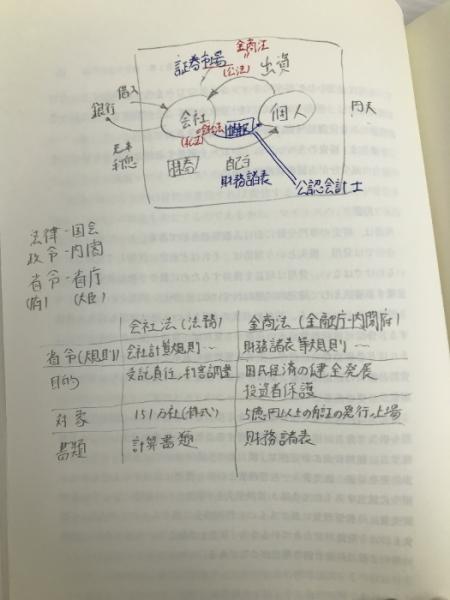 金商法
証券市場
(公法)
出資
借入
銀行
会社
個人
円天
会社法
(私法)
情報
元本
利息
配当
財務諸表
公認会計士
法律-国会
政令-内閣
省令-省庁
(府) (大臣)
会社法(法務) 金商法(金融庁・内閣府)
省令(規則) 会社計算規則~ 財務諸表等規則~
目的 受託責任、利害調整 国民経済の健全発展
投資者保護
対象 151万社(株式) 5億円以上の有証の発行、上場
書類 計算書類 財務諸表